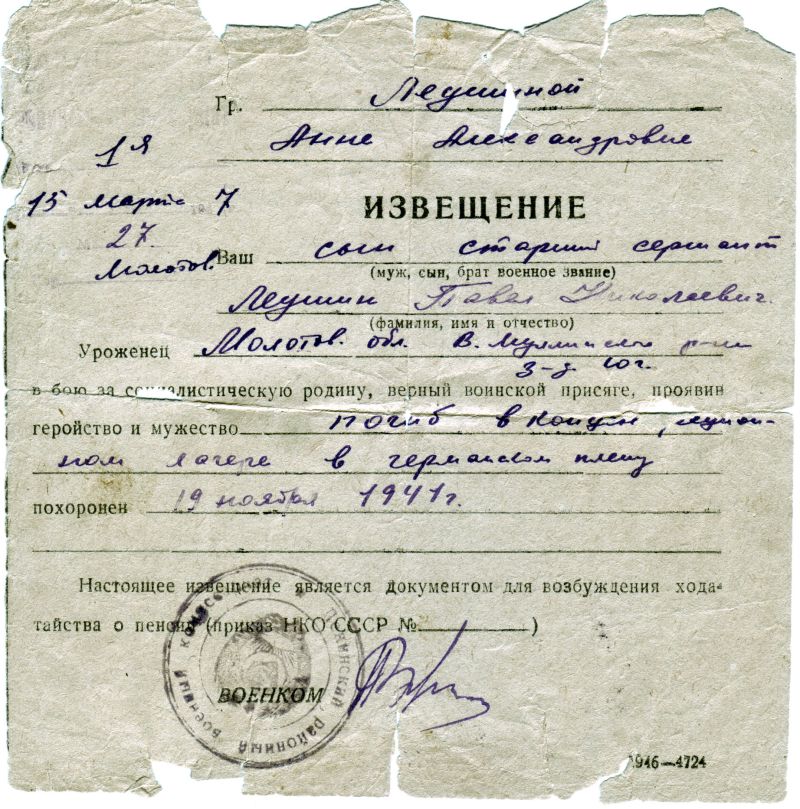 Гр. Леушиной
Анне Александровне
1я
15 марта 7
27.
Молотов.
ИЗВЕЩЕНИЕ
Ваш сын старший сержант
(муж, сын, брат военное звание)
Леушин Павел Николаевич.
(фамилия, имя и отчество)
Уроженец Молотов. обл. В. Муллинского р-на
з-д Юг.
в бою за социалистическую родину, верный воинской присяге, проявив
геройство и мужество погиб в концен, трацион-
ном лагере в германском плену
похоронен 19 ноября 1941 г.
Настоящее извещение является документом для возбуждения хода-
тайства о пенсии (приказ НКО СССР № )
ВОЕНКОМ
районный военный комиссариат
1946—4724